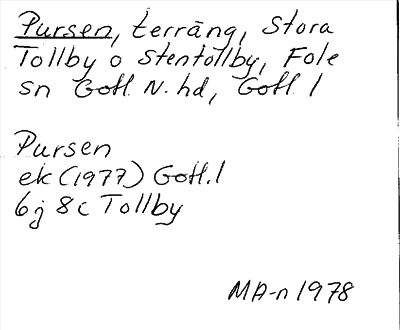 Pursen, terräng, Stora
Tollby o Stentollby, Fole
sn Gotl. N. hd, Gotl. l
Pursen
ek (1977) Gotl. l
6j 8c Tollby
MA-n 1978